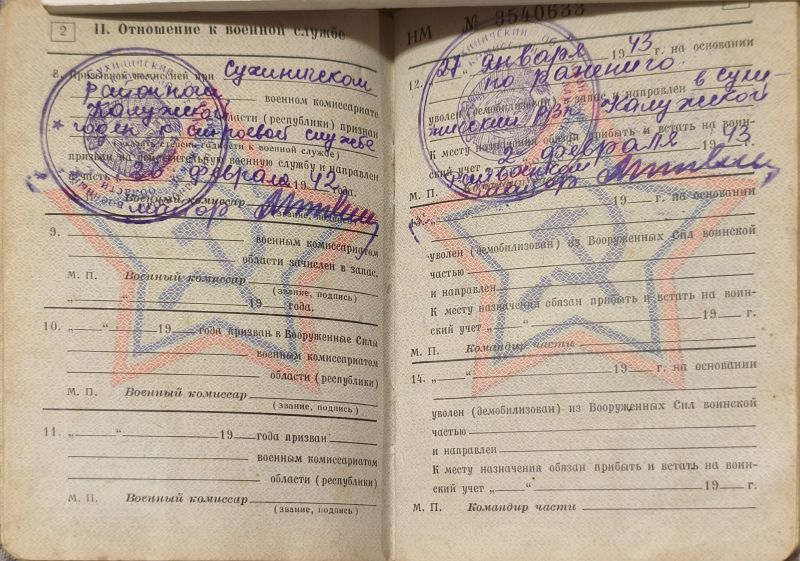 2
II. Отношение к военной службе
8. Призывной комиссией при Сухиничском
районном военном комиссариате
Калужской области (республики) признан
годен к строевой службе
(указать степень годности к военной службе)
призван на действительную военную службу и направлен
в часть февраля 1942 года.
Военный комиссар
майор
(звание, подпись)
9.
военным комиссариатом
области зачислен в запас.
М. П. Военный комиссар
(звание, подпись)
„ “ 19 года.
10. „ “ 19 года призван в Вооруженные Силы
военным комиссариатом
области (республики)
М. П. Военный комиссар
(звание, подпись)
11. „ “ 19 года призван
военным комиссариатом
области (республики)
М. П. Военный комиссар
(звание, подпись)
НМ № 3540633
12. „27 января 1943 г. на основании
по ранению
уволен (демобилизован) в запас и направлен в Сухи-
ничский РВК Калужской
К месту назначения обязан прибыть и встать на воин-
ский учет „2 февраля 1943
М. П.
майор
13. „ “ 19 г. на основании
уволен (демобилизован) из Вооруженных Сил воинской
частью
и направлен
К месту назначения обязан прибыть и встать на воин-
ский учет „ “ 19 г.
М. П. Командир части
14. „ “ 19 г. на основании
уволен (демобилизован) из Вооруженных Сил воинской
частью
и направлен
К месту назначения обязан прибыть и встать на воин-
ский учет „ “ 19 г.
М. П. Командир части